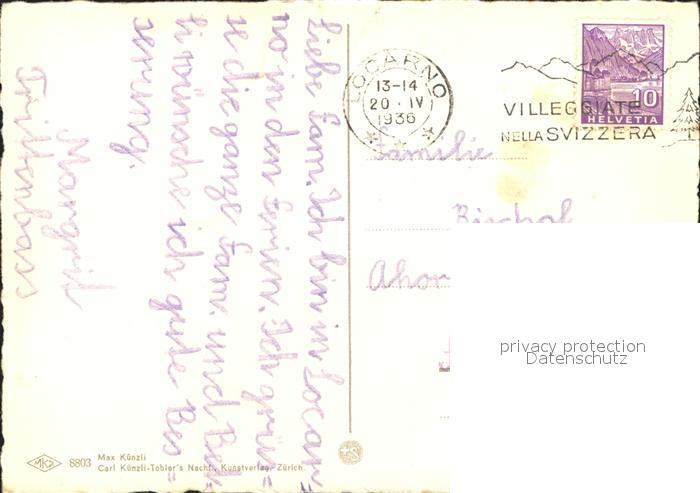 Liebe Fam. Ich bin in Locar=
no in den Ferien. Ich grüs=
se die ganze Fam. und Bet=
ti wünsche ich gute Bes=
serung.
Margrit
LOCARNO
13-14
20·IV
1936
VILLEGGIATE
NELLA SVIZZERA
10
HELVETIA
Familie
Bischof
Ahor
privacy protection
Datenschutz
MKZ 8803 Max Künzli
Carl Künzli-Tobler's Nachf., Kunstverlag, Zürich.